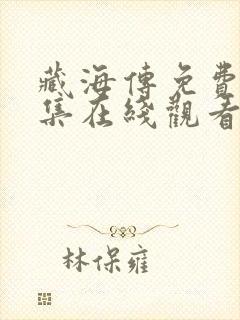 藏海傳免費
集在綫觀看
林保雍